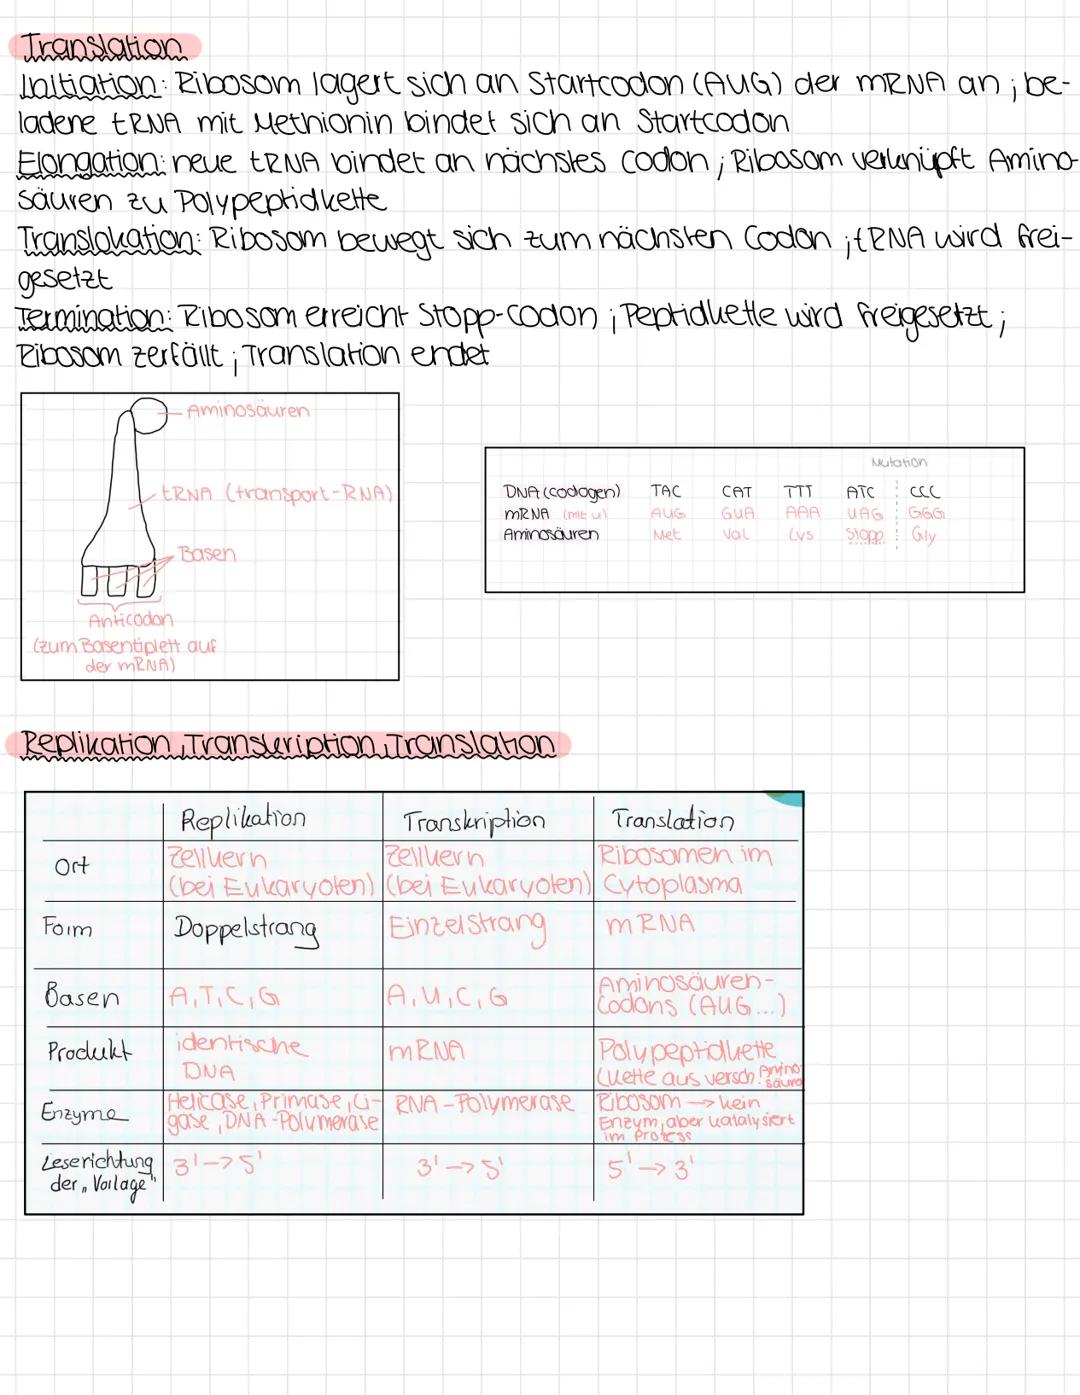 Translation
Initiation: Ribosom lagert sich an Startcodon (AUG) der mRNA an ; be-
ladene tRNA mit Methionin bindet sich an Startcodon
Elongation: neue tRNA bindet an nächstes Codon ; Ribosom verknüpft Amino-
säuren zu Polypeptidkette
Translokation: Ribosom bewegt sich zum nächsten Codon ; tRNA wird frei-
gesetzt
Termination: Ribosom erreicht Stopp-Codon ; Peptidkette wird freigesetzt ;
Ribosom zerfällt ; Translation endet
Aminosäuren
tRNA (transport-RNA)
Basen
Anticodon
(zum Basentiplett auf
der mRNA)
Mutation
DNA (codogen) TAC CAT TTT ATC CCC
mRNA (mit U) AUG GUA AAA UAG GGG
Aminosäuren Met Val Lys Stopp Gly
Replikation, Transkription, Translation
Replikation Transkription Translation
Ort Zellkern (bei Eukaryoten) Zellkern (bei Eukaryoten) Ribosomen im Cytoplasma
Form Doppelstrang Einzelstrang mRNA
Basen A, T, C, G A, U, C, G Aminosäuren-Codons (AUG...)
Produkt identische DNA mRNA Polypeptidkette (Kette aus versch. Aminosäure
Enzyme Helicase, Primase, Ligase, DNA-Polymerase RNA-Polymerase Ribosom -> kein Enzym, aber katalysiert im Prozess
Leserichtung der „Vorlage" 3' -> 5' 3' -> 5' 5' -> 3'